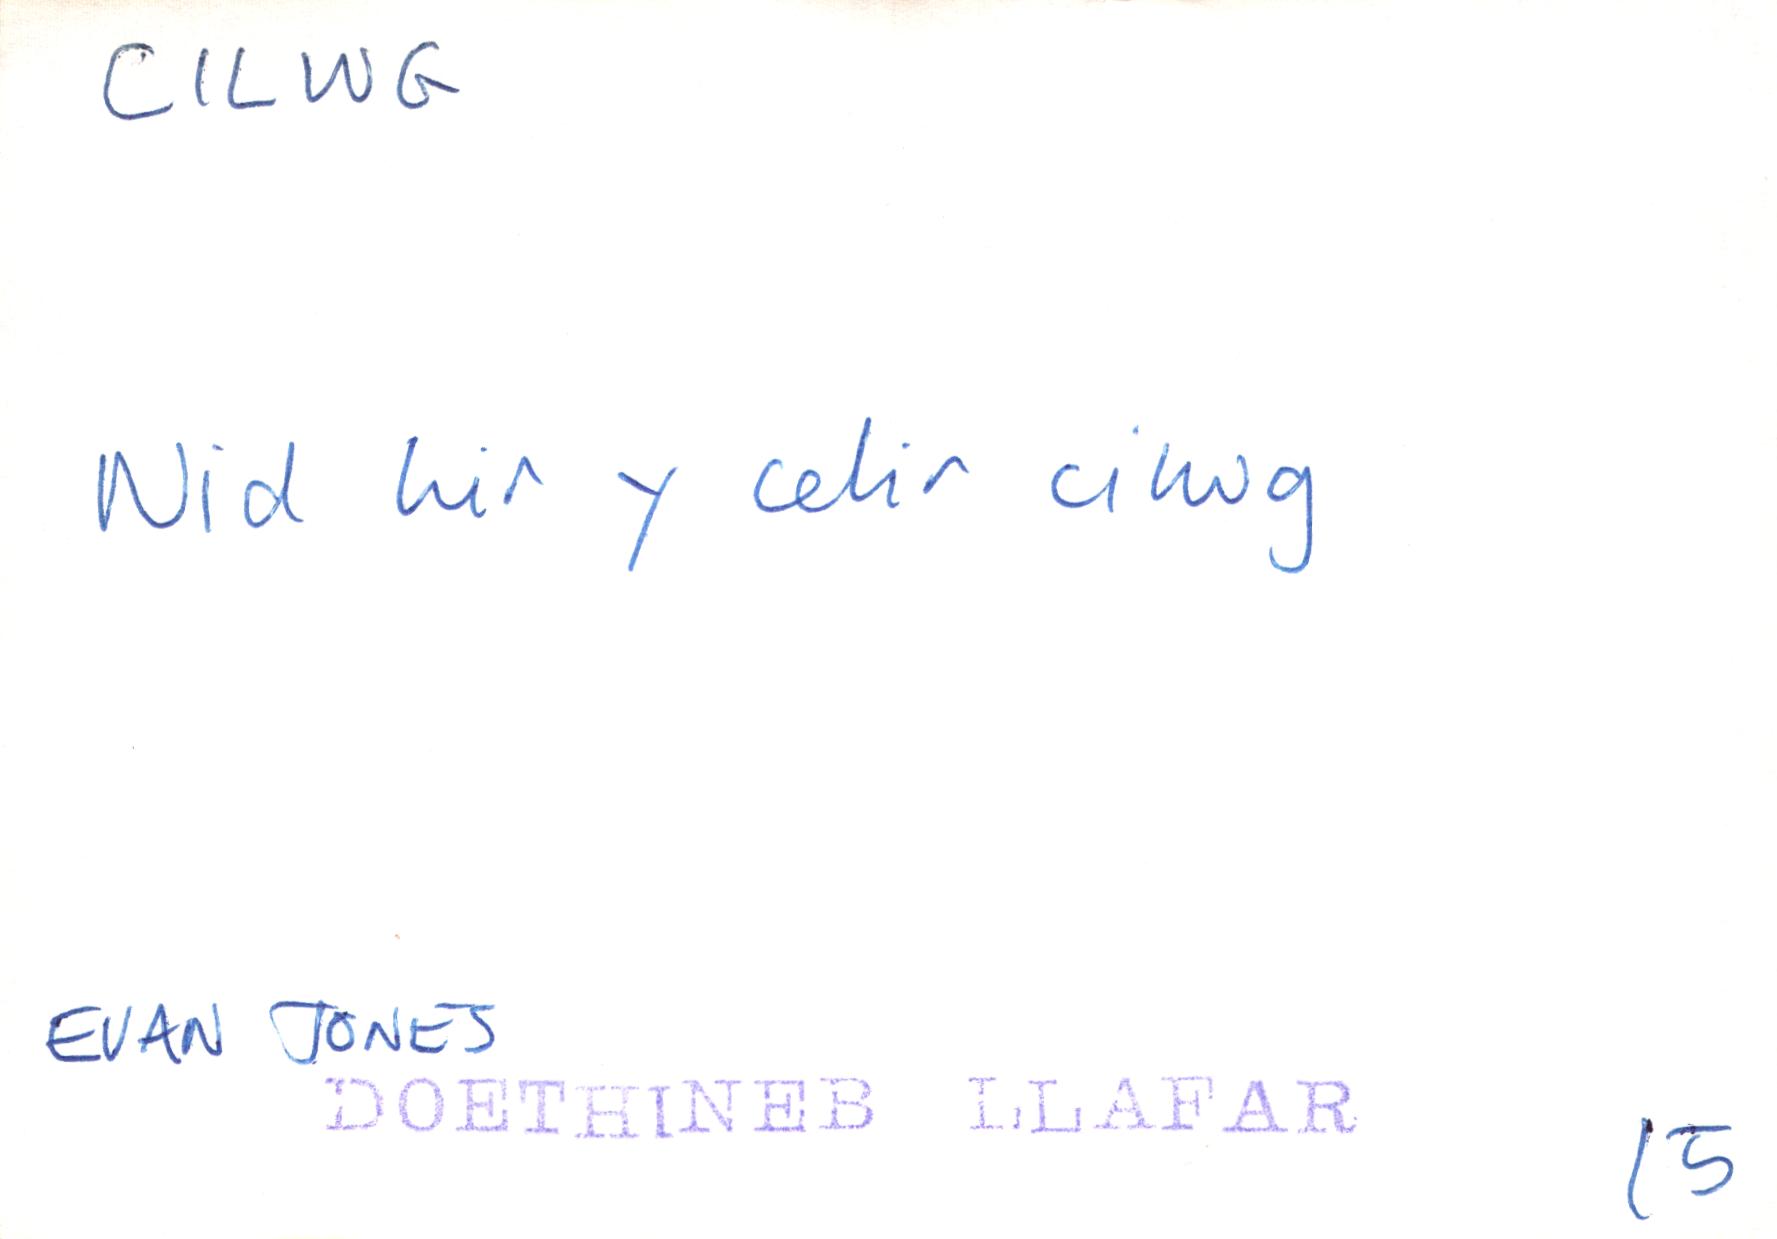 CILWG
Nid hir y celir cilwg
EVAN JONES
DOETHINEB LLAFAR
15